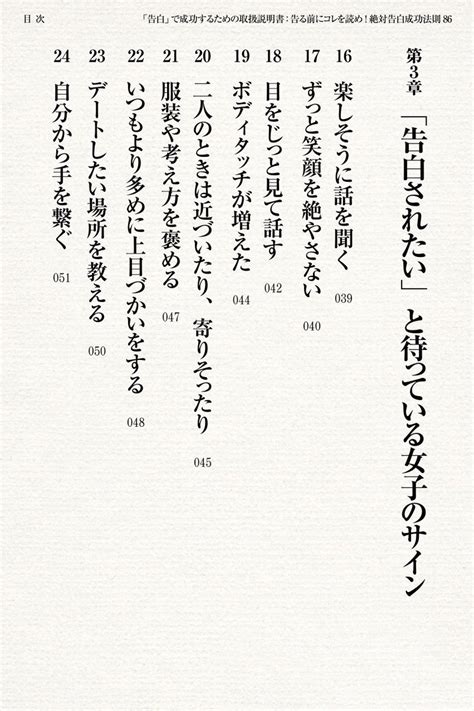 目 次
「告白」で成功するための取扱説明書：告る前にコレを読め！絶対告白成功法則86
第3章 「告白されたい」と待っている女子のサイン
16 楽しそうに話を聞く 039
17 ずっと笑顔を絶やさない 040
18 目をじっと見て話す 042
19 ボディタッチが増えた 044
20 二人のときは近づいたり、寄りそったり 045
21 服装や考え方を褒める 047
22 いつもより多めに上目づかいをする 048
23 デートしたい場所を教える 050
24 自分から手を繋ぐ 051